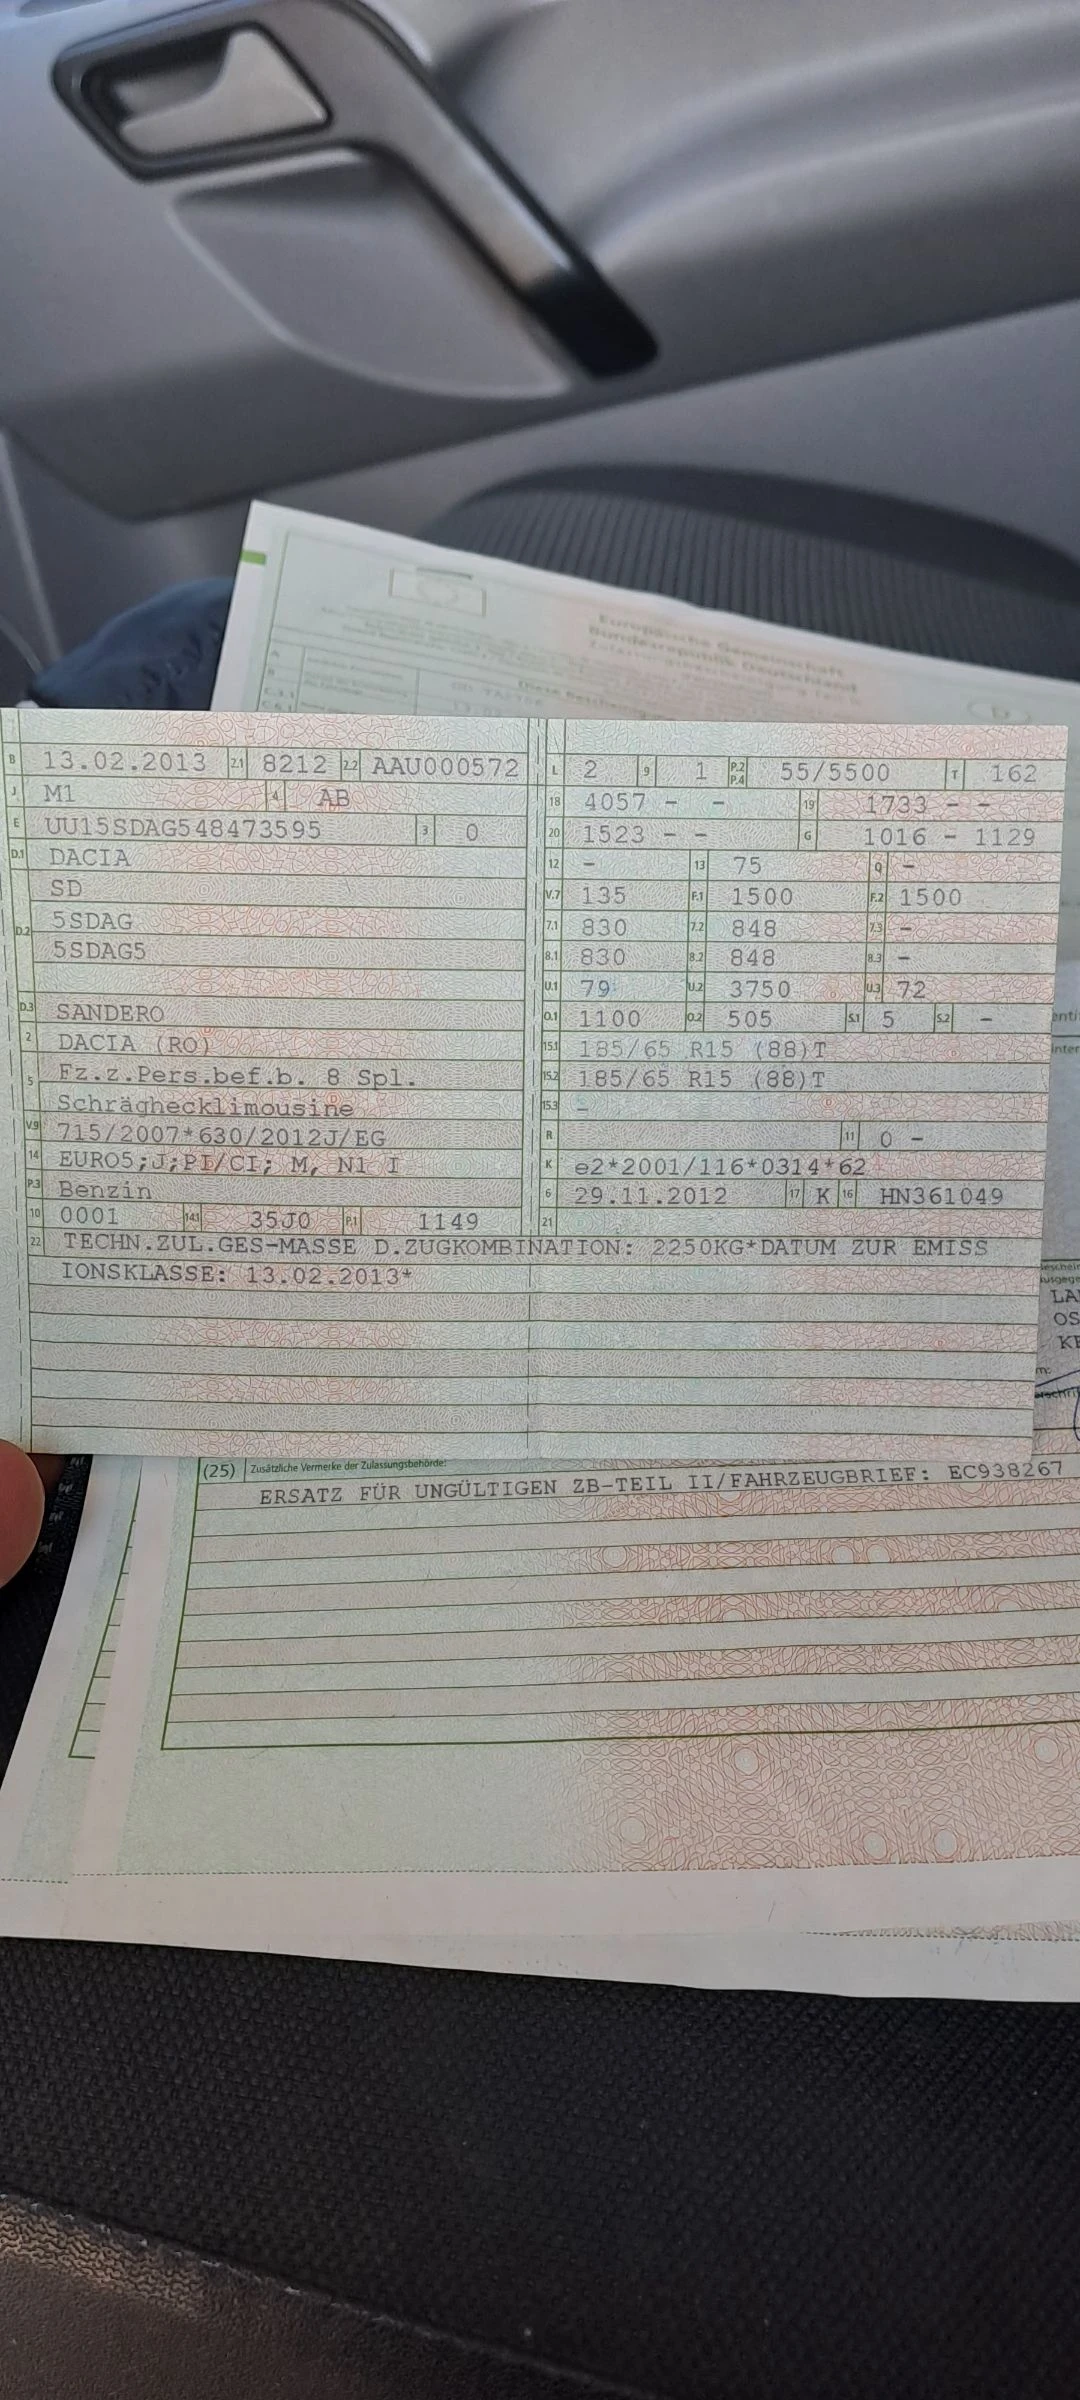 Europäische Gemeinschaft
Bundesrepublik Deutschland
A
B
C.3.1
C.6.1
B 13.02.2013 2.1 8212 2.2 AAU000572
J M1 4 AB
E UU15SDAG548473595 3 0
D.1 DACIA
D.2 SD
5SDAG
5SDAG5
D.3 SANDERO
2 DACIA (RO)
5 Fz.z.Pers.bef.b. 8 Spl.
Schräghecklimousine
V.9 715/2007*630/2012J/EG
14 EURO5;J;PI/CI; M, N1 I
P.3 Benzin
10 0001 14.1 35J0 P.1 1149
L 2 9 1 P.2 P.4 55/5500 T 162
18 4057 - - 19 1733 - -
20 1523 - - G 1016 - 1129
12 - 13 75 Q -
V.7 135 F.1 1500 F.2 1500
7.1 830 7.2 848 7.3 -
8.1 830 8.2 848 8.3 -
U.1 79 U.2 3750 U.3 72
O.1 1100 O.2 505 S.1 5 S.2 -
15.1 185/65 R15 (88)T
15.2 185/65 R15 (88)T
15.3 -
R 11 0 -
K e2*2001/116*0314*62
6 29.11.2012 17 K 16 HN361049
21
22 TECHN.ZUL.GES-MASSE D.ZUGKOMBINATION: 2250KG*DATUM ZUR EMISS
IONSKLASSE: 13.02.2013*
LA
OS
KR
(25) Zusätzliche Vermerke der Zulassungsbehörde:
ERSATZ FÜR UNGÜLTIGEN ZB-TEIL II/FAHRZEUGBRIEF: EC938267